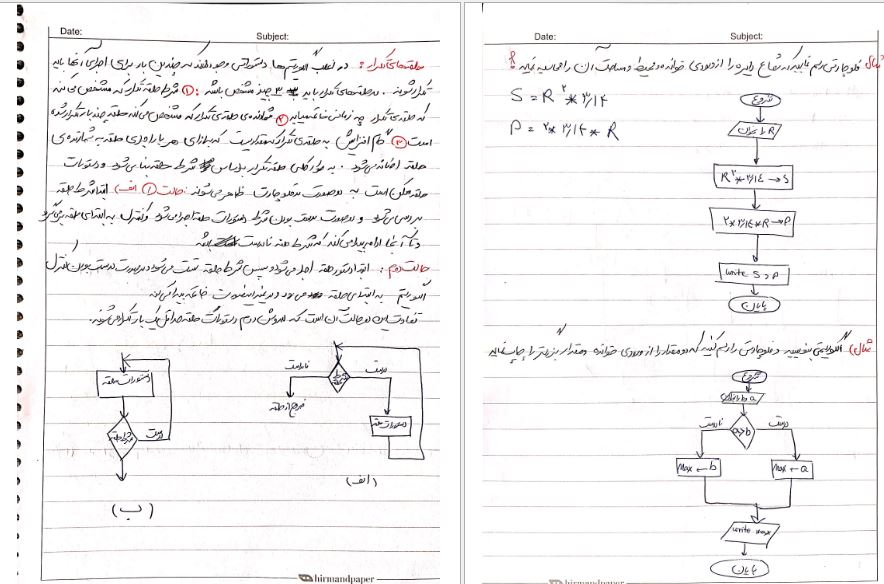 Date:
Subject:
مثال) فلوچارتی رسم نمایید که شعاع دایره را از ورودی خوانده و محیط و مساحت آن را محاسبه نماید
S = R² * ۳/۱۴
P = ۲ * ۳/۱۴ * R
شروع
R را بخوان
R² * ۳/۱۴ → S
۲ * ۳/۱۴ * R → P
write S, P
پایان
مثال) الگوریتمی بنویسید و فلوچارتی را رسم کنید که دو مقدار را از ورودی خوانده و مقدار بزرگتر را چاپ نماید
شروع
a b
a>b
نادرست
درست
Max ← b
Max ← a
write max
پایان
Date:
Subject:
حلقه‌های تکرار: در اغلب الگوریتم‌ها دستوراتی وجود دارند که چندین بار برای اجرای آنها باید
تکرار شوند. در حلقه‌های تکرار باید ۳ چیز مشخص باشد: ① شرط حلقه تکرار که مشخص می‌کند
که حلقه‌ی تکرار چه زمانی خاتمه میابد ② شمارنده‌ی حلقه‌ی تکرار که مشخص می‌کند حلقه چند بار تکرار شده
است ③ گام افزایش به حلقه‌ی تکرار که مقداریست که به ازای هر بار اجرای حلقه به شمارنده‌ی
حلقه اضافه می‌شود. به طور کلی حلقه تکرار بر اساس شرط حلقه بنا می‌شود و دستورات
حلقه ممکن است به دو صورت در فلوچارت ظاهر می‌شوند. حالت ۱) الف) ابتدا شرط حلقه
بررسی می‌شود و در صورت درست بودن شرط دستورات حلقه اجرا می‌شود و کنترل به ابتدای حلقه برمی‌گردد
و تا آنجا ادامه پیدا می‌کند که شرط حلقه نادرست باشد
حالت دوم: ابتدا دستور حلقه اجرا می‌شود و سپس شرط حلقه تست می‌شود و در صورت درست بودن کنترل
الگوریتم به ابتدای حلقه می‌رود و در غیر اینصورت خاتمه پیدا می‌کند
تفاوت این دو حالت آن است که در روش دوم دستورات حلقه حداقل یک بار تکرار می‌شوند.
نادرست
شرط حلقه
درست
خروج از حلقه
دستورات حلقه
(الف)
دستورات حلقه
شرط حلقه
درست
(ب)
hirmandpaper